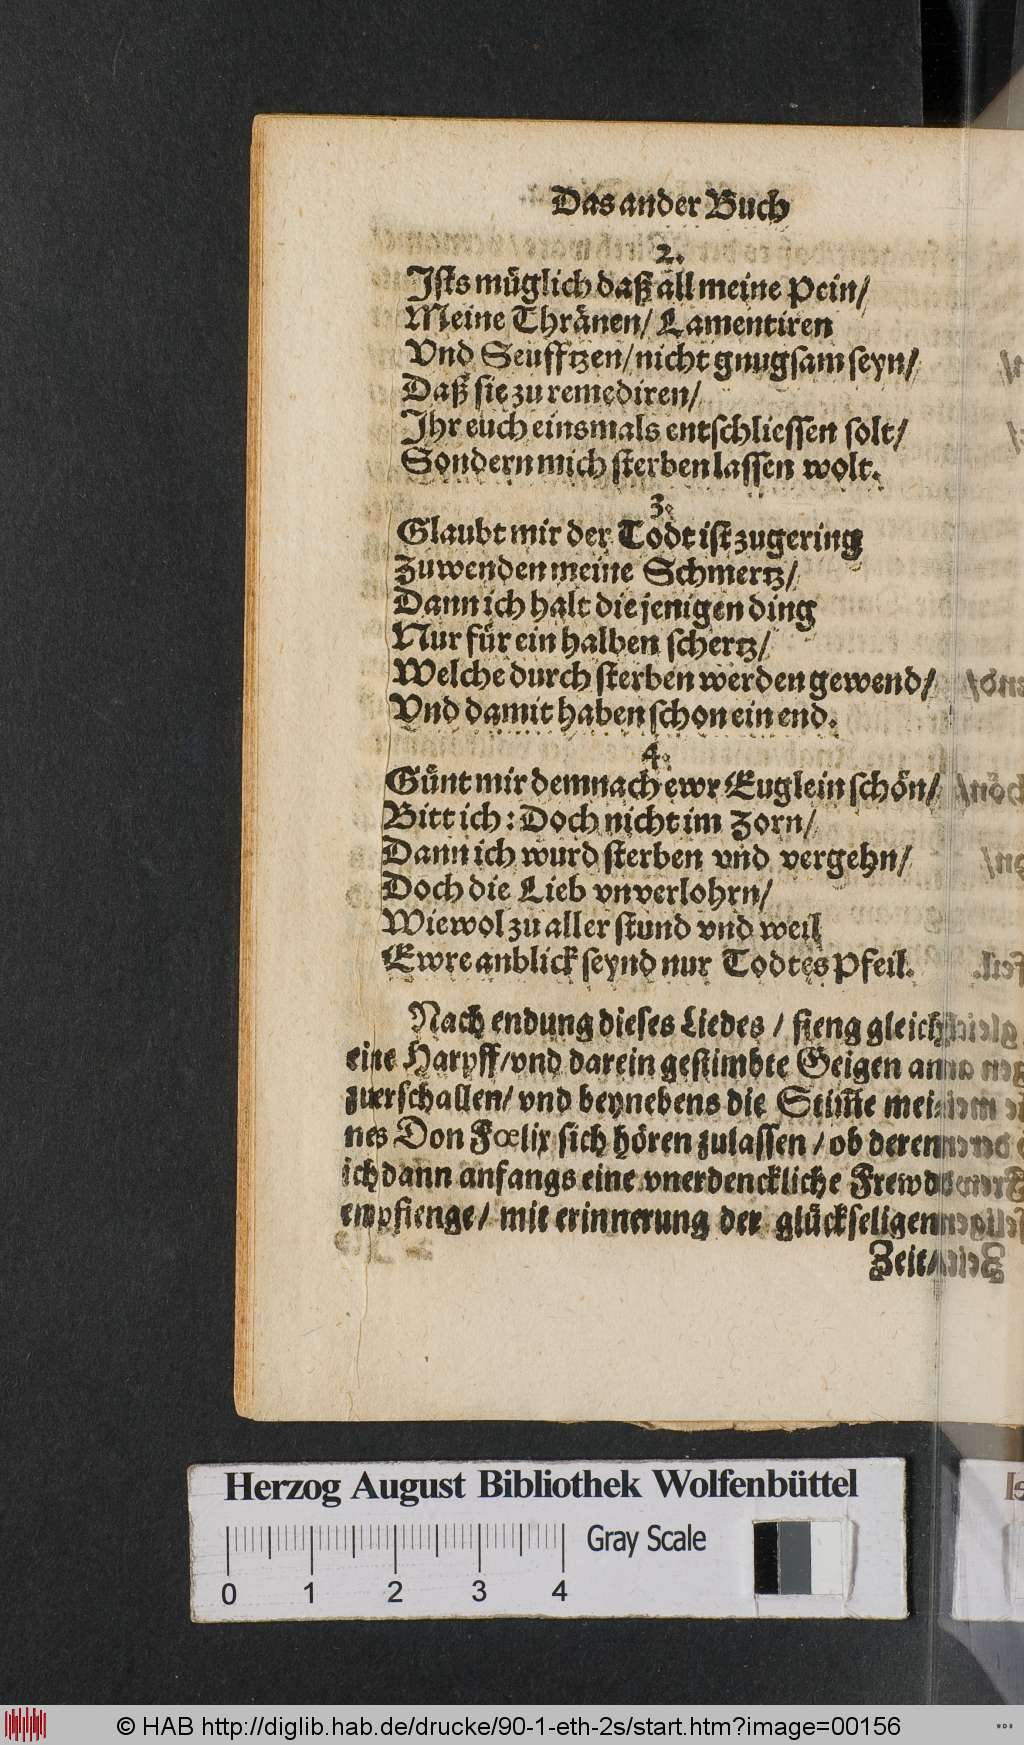 Das ander Buch
2.
Jsts müglich daß all meine Pein/
Meine Thränen/ Lamentiren
Vnd Seufftzen/ nicht gnugsam seyn/
Daß sie zu remediren/
Jhr euch einsmals entschliessen solt/
Sondern mich sterben lassen wolt.
3.
Glaubt mir der Todt ist zugering
Zuwenden meine Schmertz/
Dann ich halt die jenigen ding
Nur für ein halben schertz/
Welche durch sterben werden gewend/
Vnd damit haben schon ein end.
4.
Günt mir demnach ewr Euglein schön/
Bitt ich: Doch nicht im Zorn/
Dann ich wurd sterben vnd vergehn/
Doch die Lieb vnverlohrn/
Wiewol zu aller stund vnd weil
Ewre anblick seynd nur Todtes Pfeil.
Nach endung dieses Liedes / fieng gleich
eine Harpff/ vnd darein gestimbte Geigen an
zuerschallen/ vnd beynebens die Stim̃e mei-
nes Don Fœlix sich hören zulassen / ob deren
ich dann anfangs eine vnerdenckliche Frewd
empfienge/ mit erinnerung der glückseligen
Zeit/
Herzog August Bibliothek Wolfenbüttel
Gray Scale
0 1 2 3 4
© HAB http://diglib.hab.de/drucke/90-1-eth-2s/start.htm?image=00156